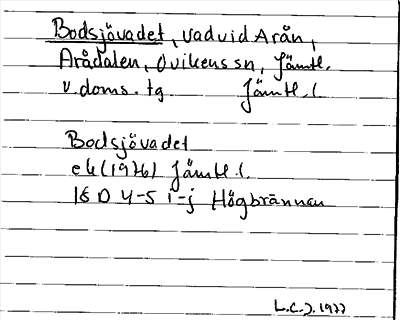 Bodsjövadet, vad vid Arån,
Arådalen, Ovikens sn, Jämtl.
v. doms. tg Jämtl. l.
Bodsjövadet
ek (1976) Jämtl. l.
18 D 4-5 i-j Högbrännan
L.C.J. 1977